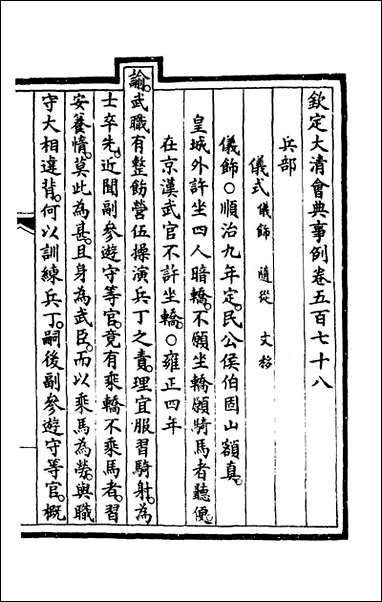 欽定大清會典事例卷五百七十八
兵部
儀式儀飾 隨從 文移
儀飾○順治九年定民公侯伯固山額真
皇城外許坐四人暗轎不願坐轎願騎馬者聽便
在京漢武官不許坐轎○雍正四年
諭武職有整飭營伍操演兵丁之責理宜服習騎射為
士卒先近聞副參遊守等官竟有乘轎不乘馬者習
安養惰莫此為甚且身為武臣而以乘馬為勞與職
守大相違背何以訓練兵丁嗣後副參遊守等官概